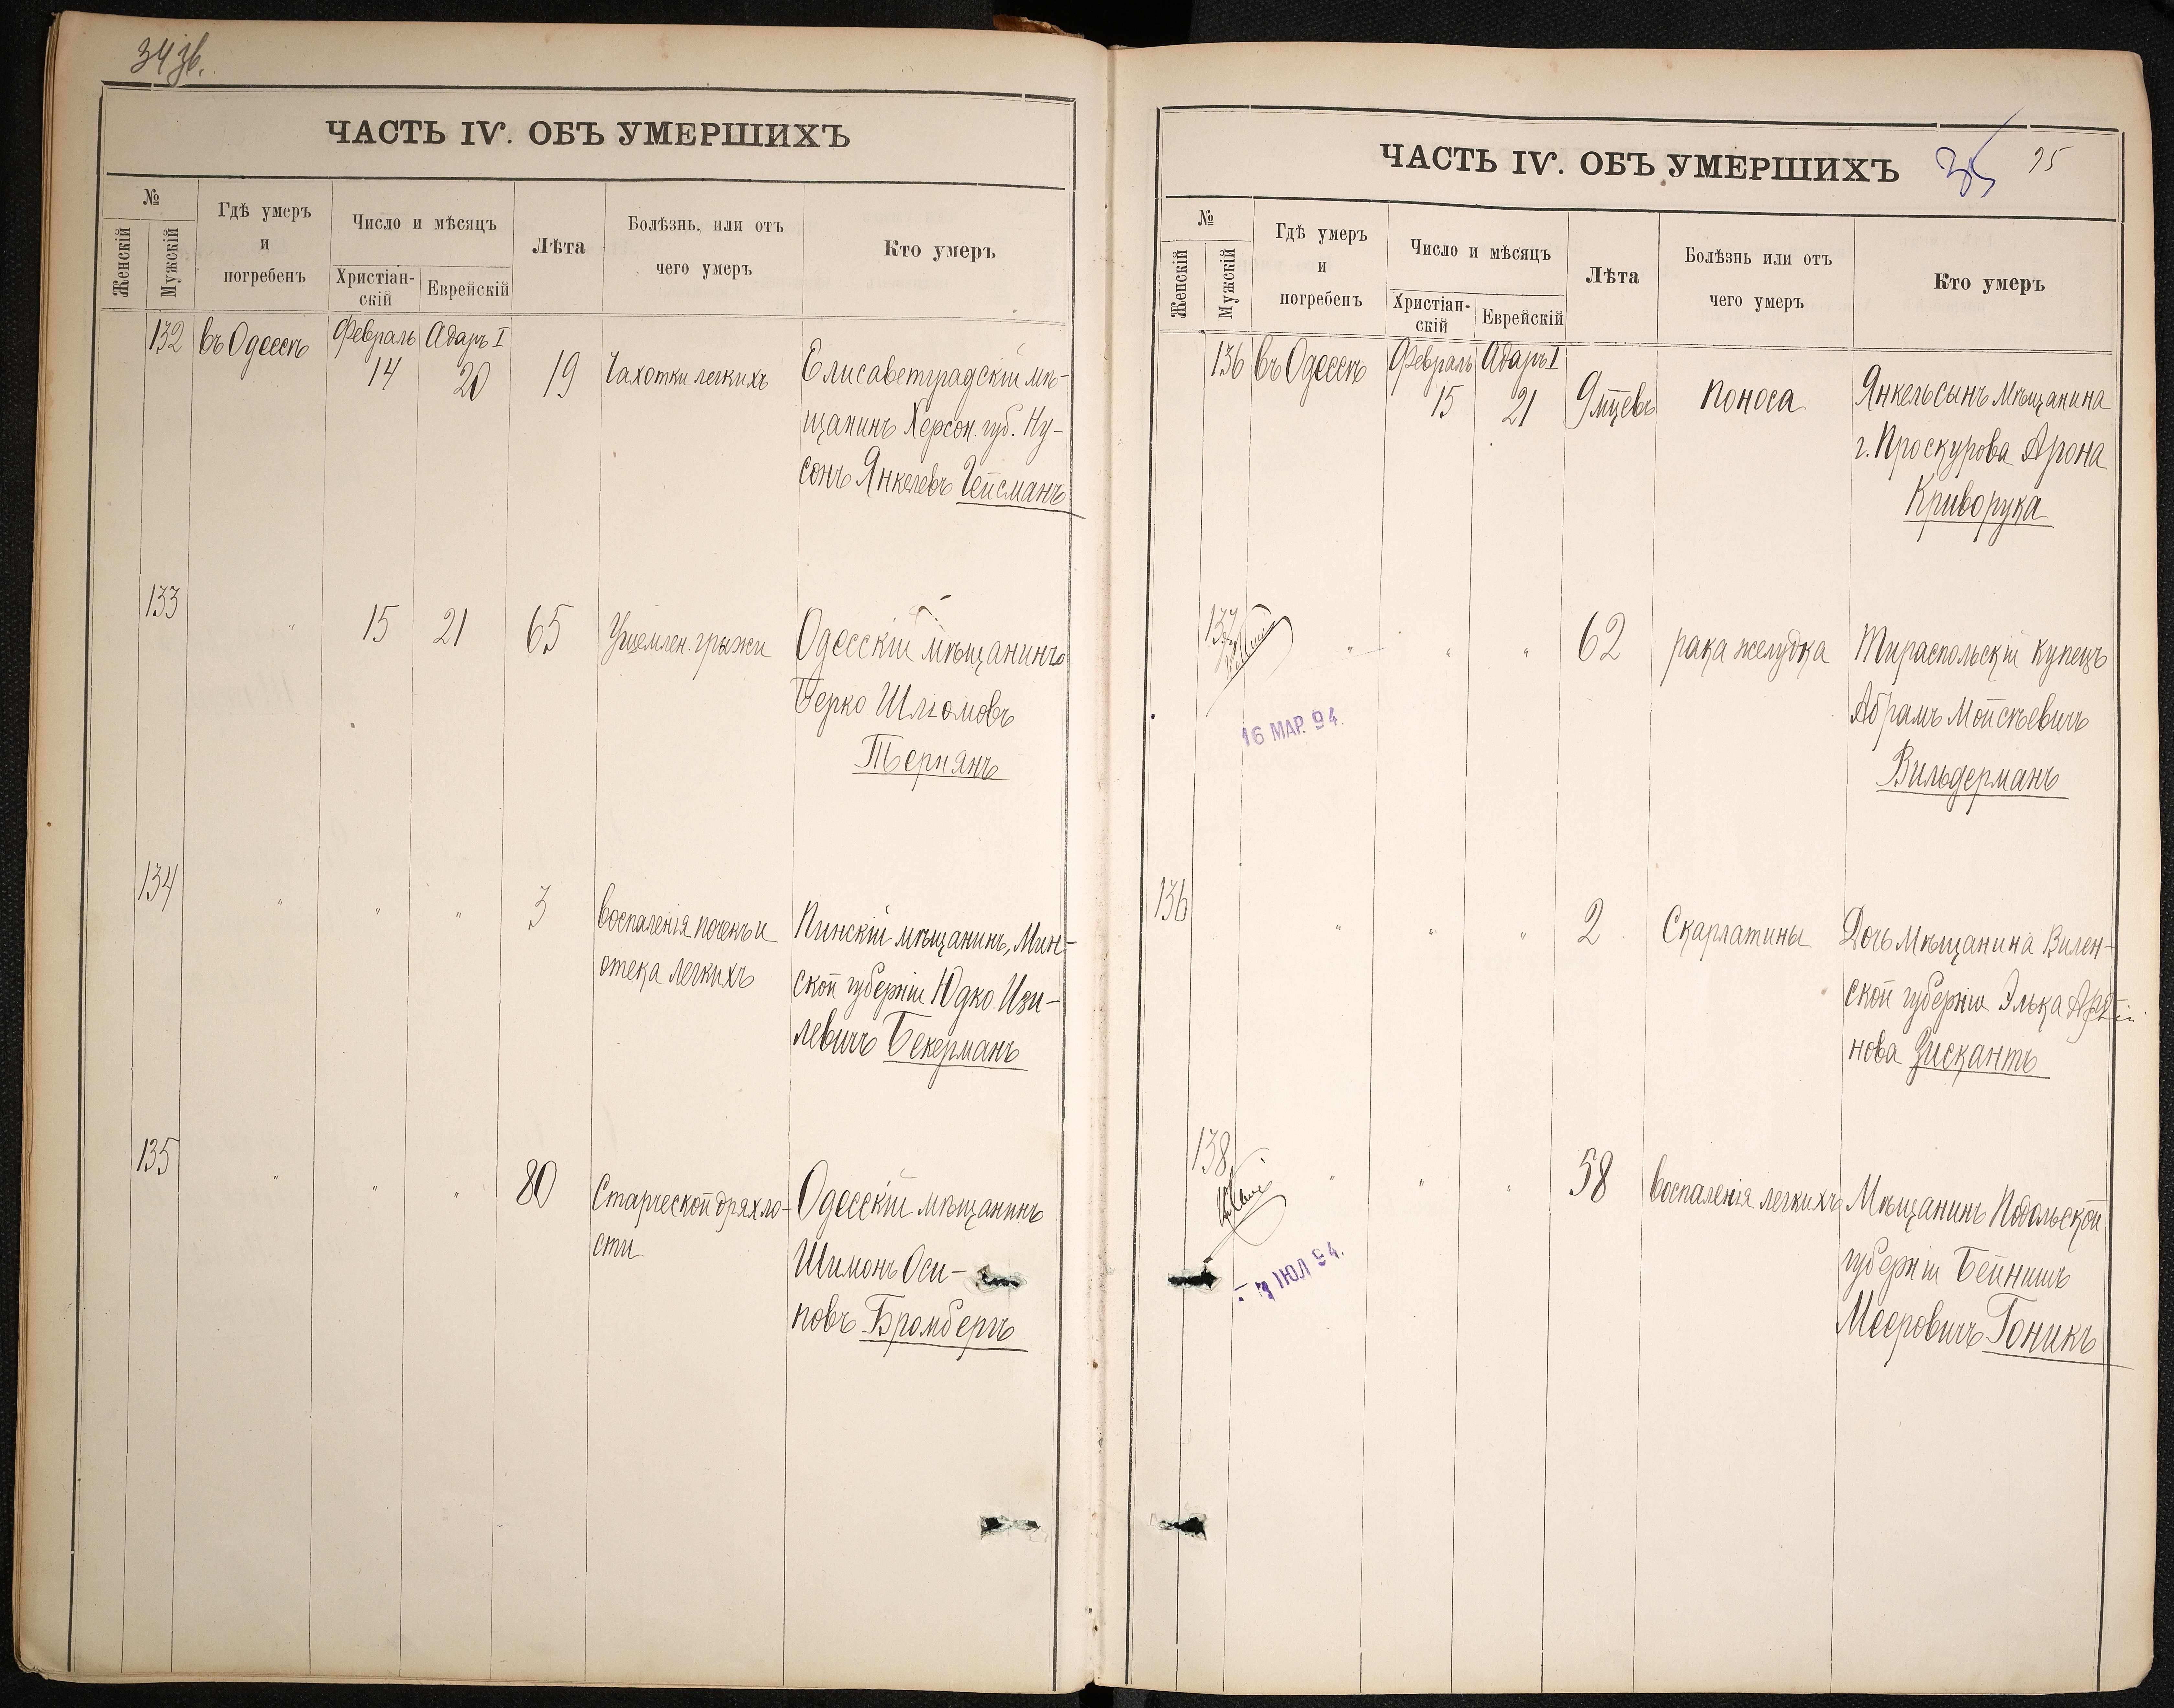 34 зв.
ЧАСТЬ IV. ОБЪ УМЕРШИХЪ
№
Женскій
Мужскій
Гдѣ умеръ
и
погребенъ
Число и мѣсяцъ
Христіан-
скій
Еврейскій
Лѣта
Болѣзнь, или отъ
чего умеръ
Кто умеръ
132 въ Одессѣ Февраль Адаръ I
14 20 19 Чахотки легкихъ Елисаветградскій мѣ-
щанинъ Херсон. губ. Ну-
сонъ Янкелевъ Гейсманъ
133 " 15 21 65 Ущемлен. грыжи Одесскій мѣщанинъ
Берко Шліомовъ
Тернянъ
134 " " " 3 Воспаленія почекъ и Пинскій мѣщанинъ, Мин-
отека легкихъ ской губерніи Юдко Изи-
левичъ Бекерманъ
135 " " " 80 Старческой дряхло- Одесскій мѣщанинъ
сти Шимонъ Оси-
повъ Бромбергъ
ЧАСТЬ IV. ОБЪ УМЕРШИХЪ 35
№
Женскій
Мужскій
Гдѣ умеръ
и
погребенъ
Число и мѣсяцъ
Христіан-
скій
Еврейскій
Лѣта
Болѣзнь или отъ
чего умеръ
Кто умеръ
136 въ Одессѣ Февраль Адаръ I
15 21 9 мцевъ Поноса Янкель сынъ мѣщанина
г. Проскурова Арона
Криворука
137 " " " 62 рака желудка Тираспольскій купецъ
16 МАР. 94. Абрамъ Мойсѣевичъ
Вильдерманъ
136 " " " 2 Скарлатины Дочь мѣщанина Вилен-
ской губерніи Элька
нова Зискантъ
138 " " " 58 Воспаленія легкихъ Мѣщанинъ Подольской
7 ІЮЛ 94. губерніи Бейнишъ
Мееровичъ Гоникъ